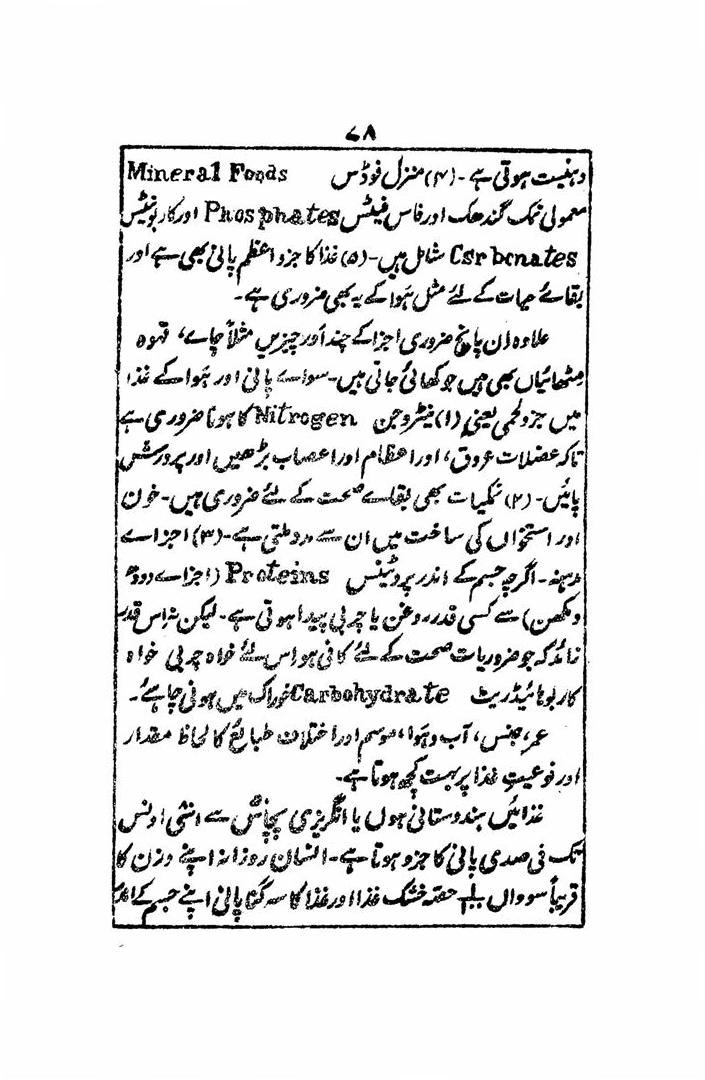 ۷۸
دہنیت ہوتی ہے۔ (۴) منرل فوڈس Mineral Foods
معمولی نمک گندھک اور فاس فیٹس Phosphates اور کاربونیٹس
Carbonates شامل ہیں۔ (۵) غذا کا جزو اعظم پانی بھی ہے اور
بقائے حیات کے لئے مثل ہوا کے یہ بھی ضروری ہے۔
علاوہ ان پانچ ضروری اجزا کے چند اور چیزیں مثلاً چاے، قہوہ
مٹھائیاں بھی ہیں جو کھائی جاتی ہیں۔ سواے پانی اور ہوا کے غذا
میں جزو لحمی یعنی (۱) نیٹروجن Nitrogen کا ہونا ضروری ہے
تاکہ عضلات عروق، اور اعظام اور اعصاب بڑھیں اور پرورش
پائیں۔ (۲) نمکیات بھی بقاے صحت کے لئے ضروری ہیں۔ خون
اور استخواں کی ساخت میں ان سے مدد ملتی ہے۔ (۳) اجزاے
دہنہ۔ اگرچہ جسم کے اندر پروٹینس Proteins (اجزاے دودھ
و مکھن) سے کسی قدر روغن یا چربی پیدا ہوتی ہے۔ لیکن نہ اس قدر
زائد کہ جو ضروریات صحت کے لئے کافی ہو اس لئے خواہ چربی خواہ
کاربوہائیڈریٹ Carbohydrate خوراک میں ہونی چاہئے۔
عمر، جنس، آب و ہوا، موسم اور اختلاف طبائع کا لحاظ مقدار
اور نوعیت غذا پر بہت کچھ ہوتا ہے۔
غذائیں ہندوستانی ہوں یا انگریزی پچاس سے اسّی اونس
تک فی صدی پانی کا جزو ہوتا ہے۔ انسان روزانہ اپنے وزن کا
قریباً سوواں حصّہ خشک غذا اور غذا کا سہ گنا پانی اپنے جسم کے اندر